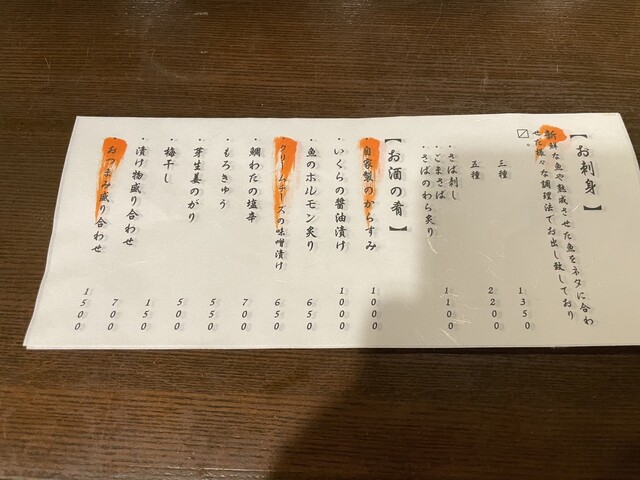 【お刺身】
新鮮な魚や熟成させた魚をネタに合わ
せた様々な調理法でお出し致しており
〼。
三種 1350
五種 2200
・さば刺し
・ごまさば
・さばのわら炙り 1100
【お酒の肴】
・自家製のからすみ 1000
・いくらの醤油漬け 1000
・魚のホルモン炙り 650
・クリームチーズの味噌漬け 650
・鯛わたの塩辛 700
・もろきゅう 550
・芽生姜のがり 500
・梅干し 150
・漬け物盛り合わせ 700
・おつまみ盛り合わせ 1500